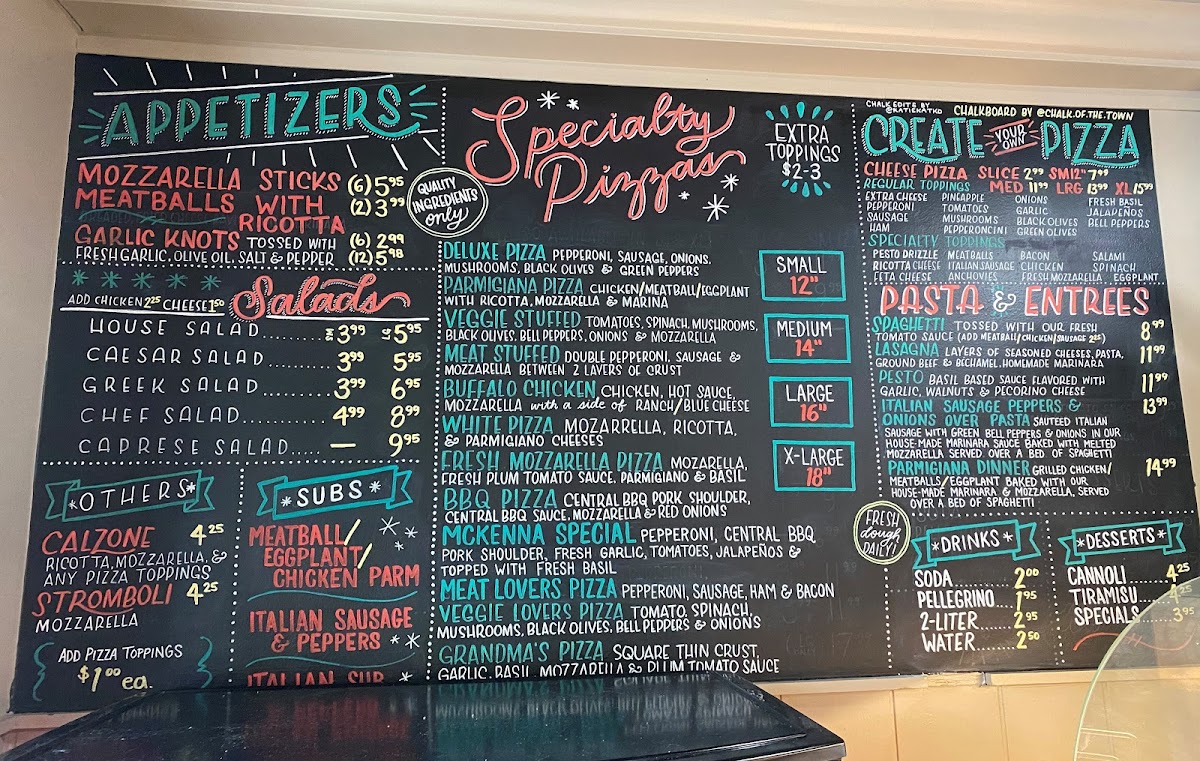 APPETIZERS
MOZZARELLA STICKS (6) 5.95
MEATBALLS WITH (2) 3.99
RICOTTA
GARLIC KNOTS TOSSED WITH (6) 2.99
FRESH GARLIC, OLIVE OIL, SALT & PEPPER (12) 5.98
ADD CHICKEN 2.25 CHEESE 1.50
Salads
HOUSE SALAD............ SM 3.99 LG 5.95
CAESAR SALAD.......... 3.99 5.95
GREEK SALAD............. 3.99 6.95
CHEF SALAD............... 4.99 8.99
CAPRESE SALAD..... — 9.95
*OTHERS*
CALZONE 4.25
RICOTTA, MOZZARELLA, &
ANY PIZZA TOPPINGS
STROMBOLI 4.25
MOZZARELLA
ADD PIZZA TOPPINGS
$1.00 ea.
*SUBS*
MEATBALL/
EGGPLANT/
CHICKEN PARM
ITALIAN SAUSAGE
& PEPPERS
ITALIAN SUB
Specialty
Pizzas
QUALITY
INGREDIENTS
only
EXTRA
TOPPINGS
$2-3
DELUXE PIZZA PEPPERONI, SAUSAGE, ONIONS.
MUSHROOMS, BLACK OLIVES & GREEN PEPPERS
PARMIGIANA PIZZA CHICKEN/MEATBALL/EGGPLANT
WITH RICOTTA, MOZZARELLA & MARINA
VEGGIE STUFFED TOMATOES, SPINACH, MUSHROOMS,
BLACK OLIVES, BELL PEPPERS, ONIONS & MOZZARELLA
MEAT STUFFED DOUBLE PEPPERONI, SAUSAGE &
MOZZARELLA BETWEEN 2 LAYERS OF CRUST
BUFFALO CHICKEN CHICKEN, HOT SAUCE,
MOZZARELLA with a side of RANCH/BLUE CHEESE
WHITE PIZZA MOZARRELLA, RICOTTA,
& PARMIGIANO CHEESES
FRESH MOZZARELLA PIZZA MOZARELLA,
FRESH PLUM TOMATO SAUCE, PARMIGIANO & BASIL
BBQ PIZZA CENTRAL BBQ PORK SHOULDER,
CENTRAL BBQ SAUCE, MOZZARELLA & RED ONIONS
MCKENNA SPECIAL PEPPERONI, CENTRAL BBQ
PORK SHOULDER, FRESH GARLIC, TOMATOES, JALAPEÑOS &
TOPPED WITH FRESH BASIL
MEAT LOVERS PIZZA PEPPERONI, SAUSAGE, HAM & BACON
VEGGIE LOVERS PIZZA TOMATO, SPINACH,
MUSHROOMS, BLACK OLIVES, BELL PEPPERS & ONIONS
GRANDMA'S PIZZA SQUARE THIN CRUST,
GARLIC, BASIL, MOZZARELLA & PLUM TOMATO SAUCE
SMALL
12"
MEDIUM
14"
LARGE
16"
X-LARGE
18"
CHALK EDITS BY
@KATIEHATKO
CHALKBOARD BY @CHALK.OF.THE.TOWN
CREATE YOUR OWN PIZZA
CHEESE PIZZA SLICE 2.99 SM 12" 7.99
REGULAR TOPPINGS MED 11.99 LRG 13.99 XL 15.99
EXTRA CHEESE PINEAPPLE ONIONS FRESH BASIL
PEPPERONI TOMATOES GARLIC JALAPEÑOS
SAUSAGE MUSHROOMS BLACK OLIVES BELL PEPPERS
HAM PEPPERONCINI GREEN OLIVES
SPECIALTY TOPPINGS
PESTO DRIZZLE MEATBALLS BACON SALAMI
RICOTTA CHEESE ITALIAN SAUSAGE CHICKEN SPINACH
FETA CHEESE ANCHOVIES FRESH MOZZARELLA EGGPLANT
PASTA & ENTREES
SPAGHETTI TOSSED WITH OUR FRESH 8.99
TOMATO SAUCE (ADD MEATBALL/CHICKEN/SAUSAGE 2.25)
LASAGNA LAYERS OF SEASONED CHEESES, PASTA, 11.99
GROUND BEEF & BECHAMEL. HOMEMADE MARINARA
PESTO BASIL BASED SAUCE FLAVORED WITH 11.99
GARLIC, WALNUTS & PECORINO CHEESE
ITALIAN SAUSAGE PEPPERS & 13.99
ONIONS OVER PASTA SAUTEED ITALIAN
SAUSAGE WITH GREEN BELL PEPPERS & ONIONS IN OUR
HOUSE-MADE MARINARA SAUCE BAKED WITH MELTED
MOZZARELLA SERVED OVER A BED OF SPAGHETTI
PARMIGIANA DINNER GRILLED CHICKEN/ 14.99
MEATBALLS/EGGPLANT BAKED WITH OUR
HOUSE-MADE MARINARA & MOZZARELLA, SERVED
OVER A BED OF SPAGHETTI
FRESH
dough
DAILY!
*DRINKS*
SODA............ 2.00
PELLEGRINO.... 1.95
2-LITER........ 2.95
WATER........ 2.50
*DESSERTS*
CANNOLI....... 4.25
TIRAMISU..... 4.25
SPECIALS..... 3.95